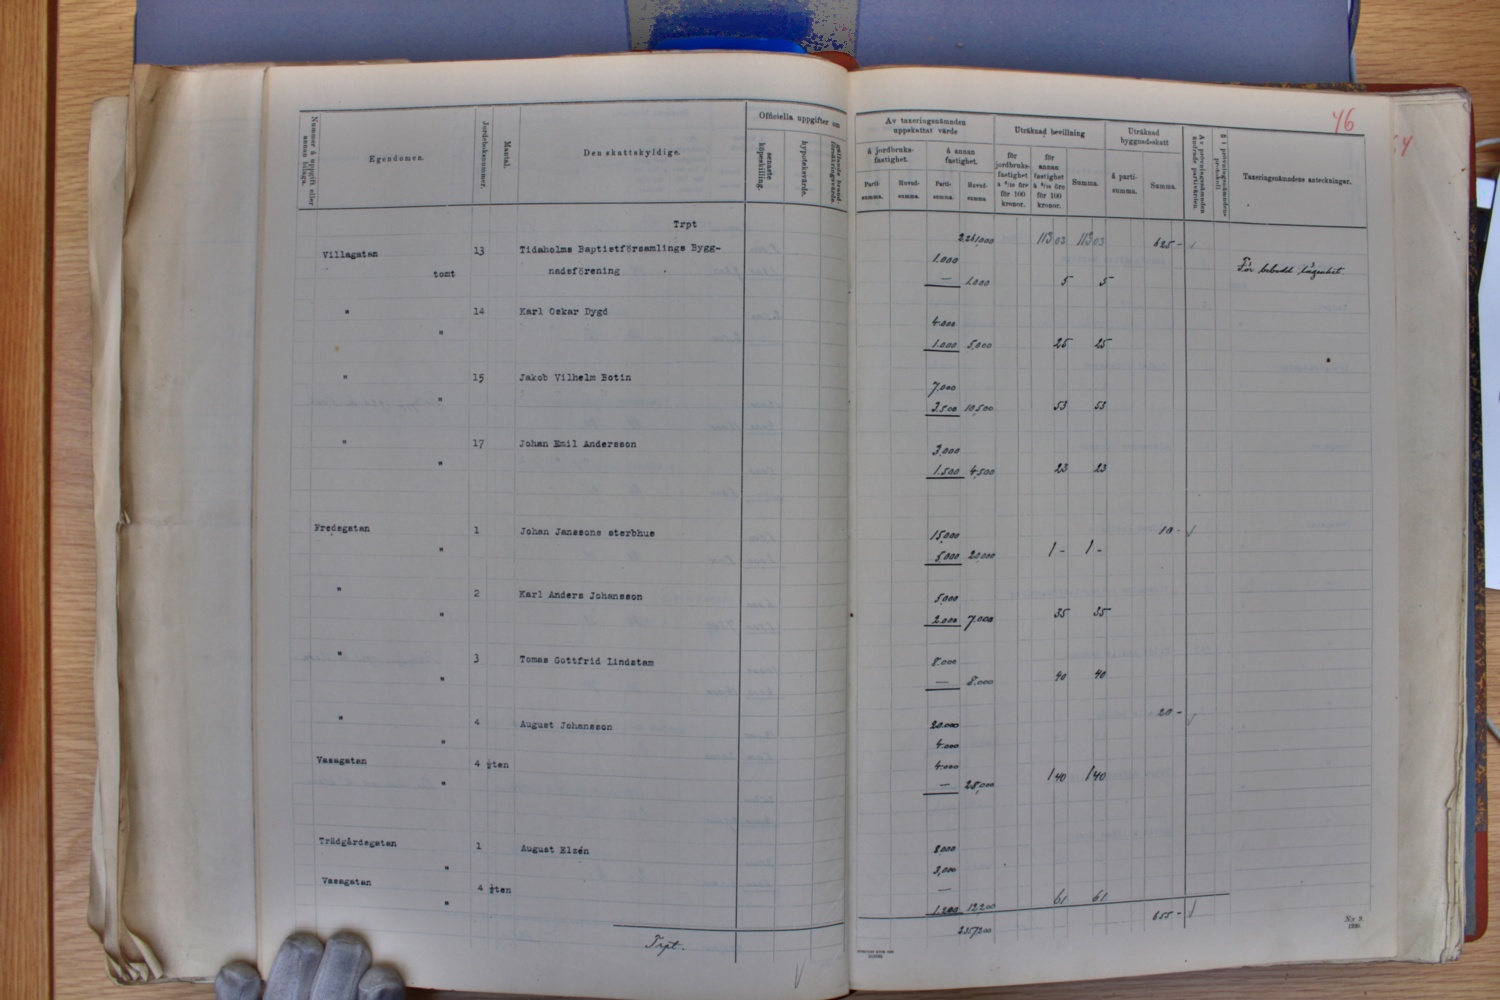 46
Nummer å uppgift eller annan bilaga.
Egendomen.
Jordeboksnummer.
Mantal.
Den skattskyldige.
Officiella uppgifter om
senaste köpeskilling.
hypoteksvärde.
gällande brandförsäkringsvärde.
Av taxeringsnämnden uppskattat värde
å jordbruksfastighet.
å annan fastighet.
Partisumma.
Huvudsumma.
Partisumma.
Huvudsumma
Uträknad bevillning
för jordbruksfastighet
för 100 kronor.
för annan fastighet
för 100 kronor.
Summa.
Uträknad byggnadsskatt
å partisumma.
Summa.
Av prövningsnämnden ändrade partivärden
Taxeringsnämndens anteckningar.
Trpt 2261,000 113 03 113 03 625 -
Villagatan 13 Tidaholms Baptistförsamlings Bygg- 1.000
tomt nadsförening — 1.000 5 5 För bebodd lägenhet
" 14 Karl Oskar Dygd 4.000
" 1.000 5,000 25 25
" 15 Jakob Vilhelm Botin 7,000
" 3.500 10,500 53 53
" 17 Johan Emil Andersson 3.000
" 1.500 4,500 23 23
Fredsgatan 1 Johan Janssons sterbhus 15,000 10 -
" 5,000 20,000 1 - 1 -
" 2 Karl Anders Johansson 5,000
" 2.000 7,000 35 35
" 3 Tomas Gottfrid Lindstam 8.000
" — 8.000 40 40
" 4 August Johansson 20.000 20 -
" 4.000
Vasagatan 4 ½ten 4.000
" — 28,000 1 40 1 40
Trädgårdsgatan 1 August Elzén 8,000
" 3,000
Vasagatan 4 ½ten —
" 1.200 12,200 61 61
Trpt. 2357200 655 -
Nr 9.
1930.